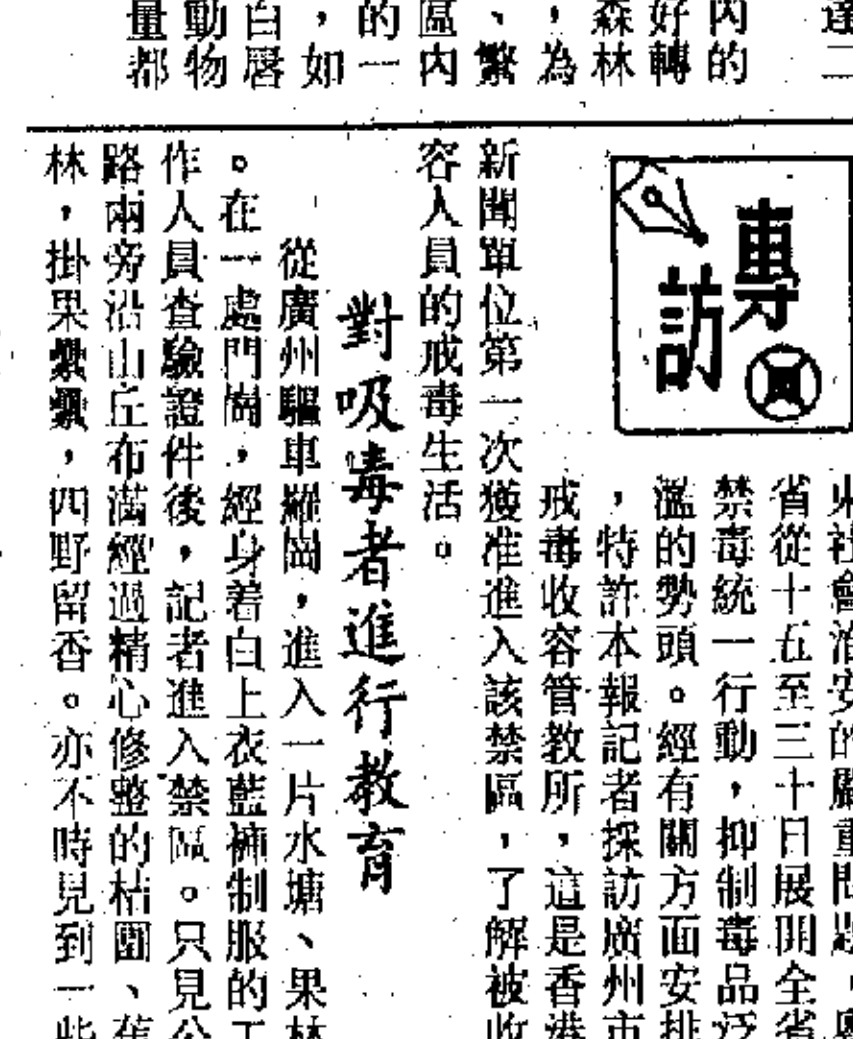 達二
內的
好轉
森林
，為
、繁
區內
的一
，如
白唇
動物
量都
專訪
社會治安的嚴重問題，粵
省從十五至三十日展開全省
禁毒統一行動，抑制毒品泛
濫的勢頭。經有關方面安排
，特許本報記者採訪廣州市
戒毒收容管教所，這是香港
新聞單位第一次獲准進入該禁區，了解被收
容人員的戒毒生活。
對吸毒者進行教育
從廣州驅車羅崗，進入一片水塘、果林
。在一處門崗，經身着白上衣藍褲制服的工
作人員查驗證件後，記者進入禁區。只見公
路兩旁沿山丘布滿經過精心修整的桔園、
林，掛果纍纍，四野留香。亦不時見到一些